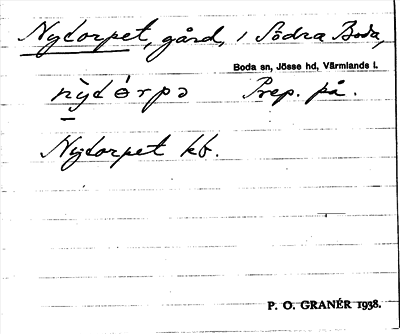 Nytorpet, gård, i Södra Boda,
Boda sn, Jösse hd, Värmlands l.
nỳtórpə Prep. på.
Nytorpet kb.
P. O. GRANÉR 1938.